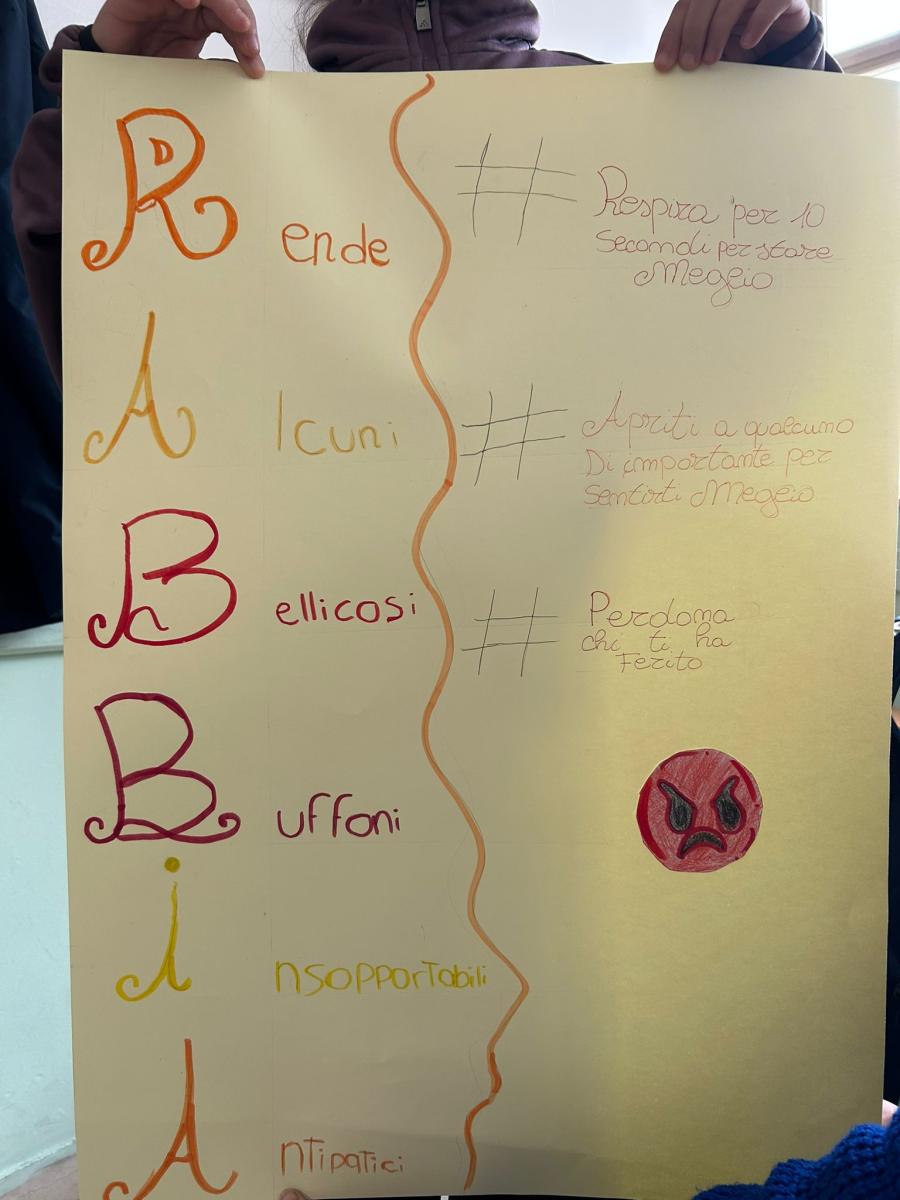 Rende
Alcuni
Bellicosi
Buffoni
insopportabili
Antipatici
# Respira per 10
secondi per stare
Meglio
# Apriti a qualcuno
Di importante per
sentirti Meglio
# Perdona
chi ti ha
Ferito